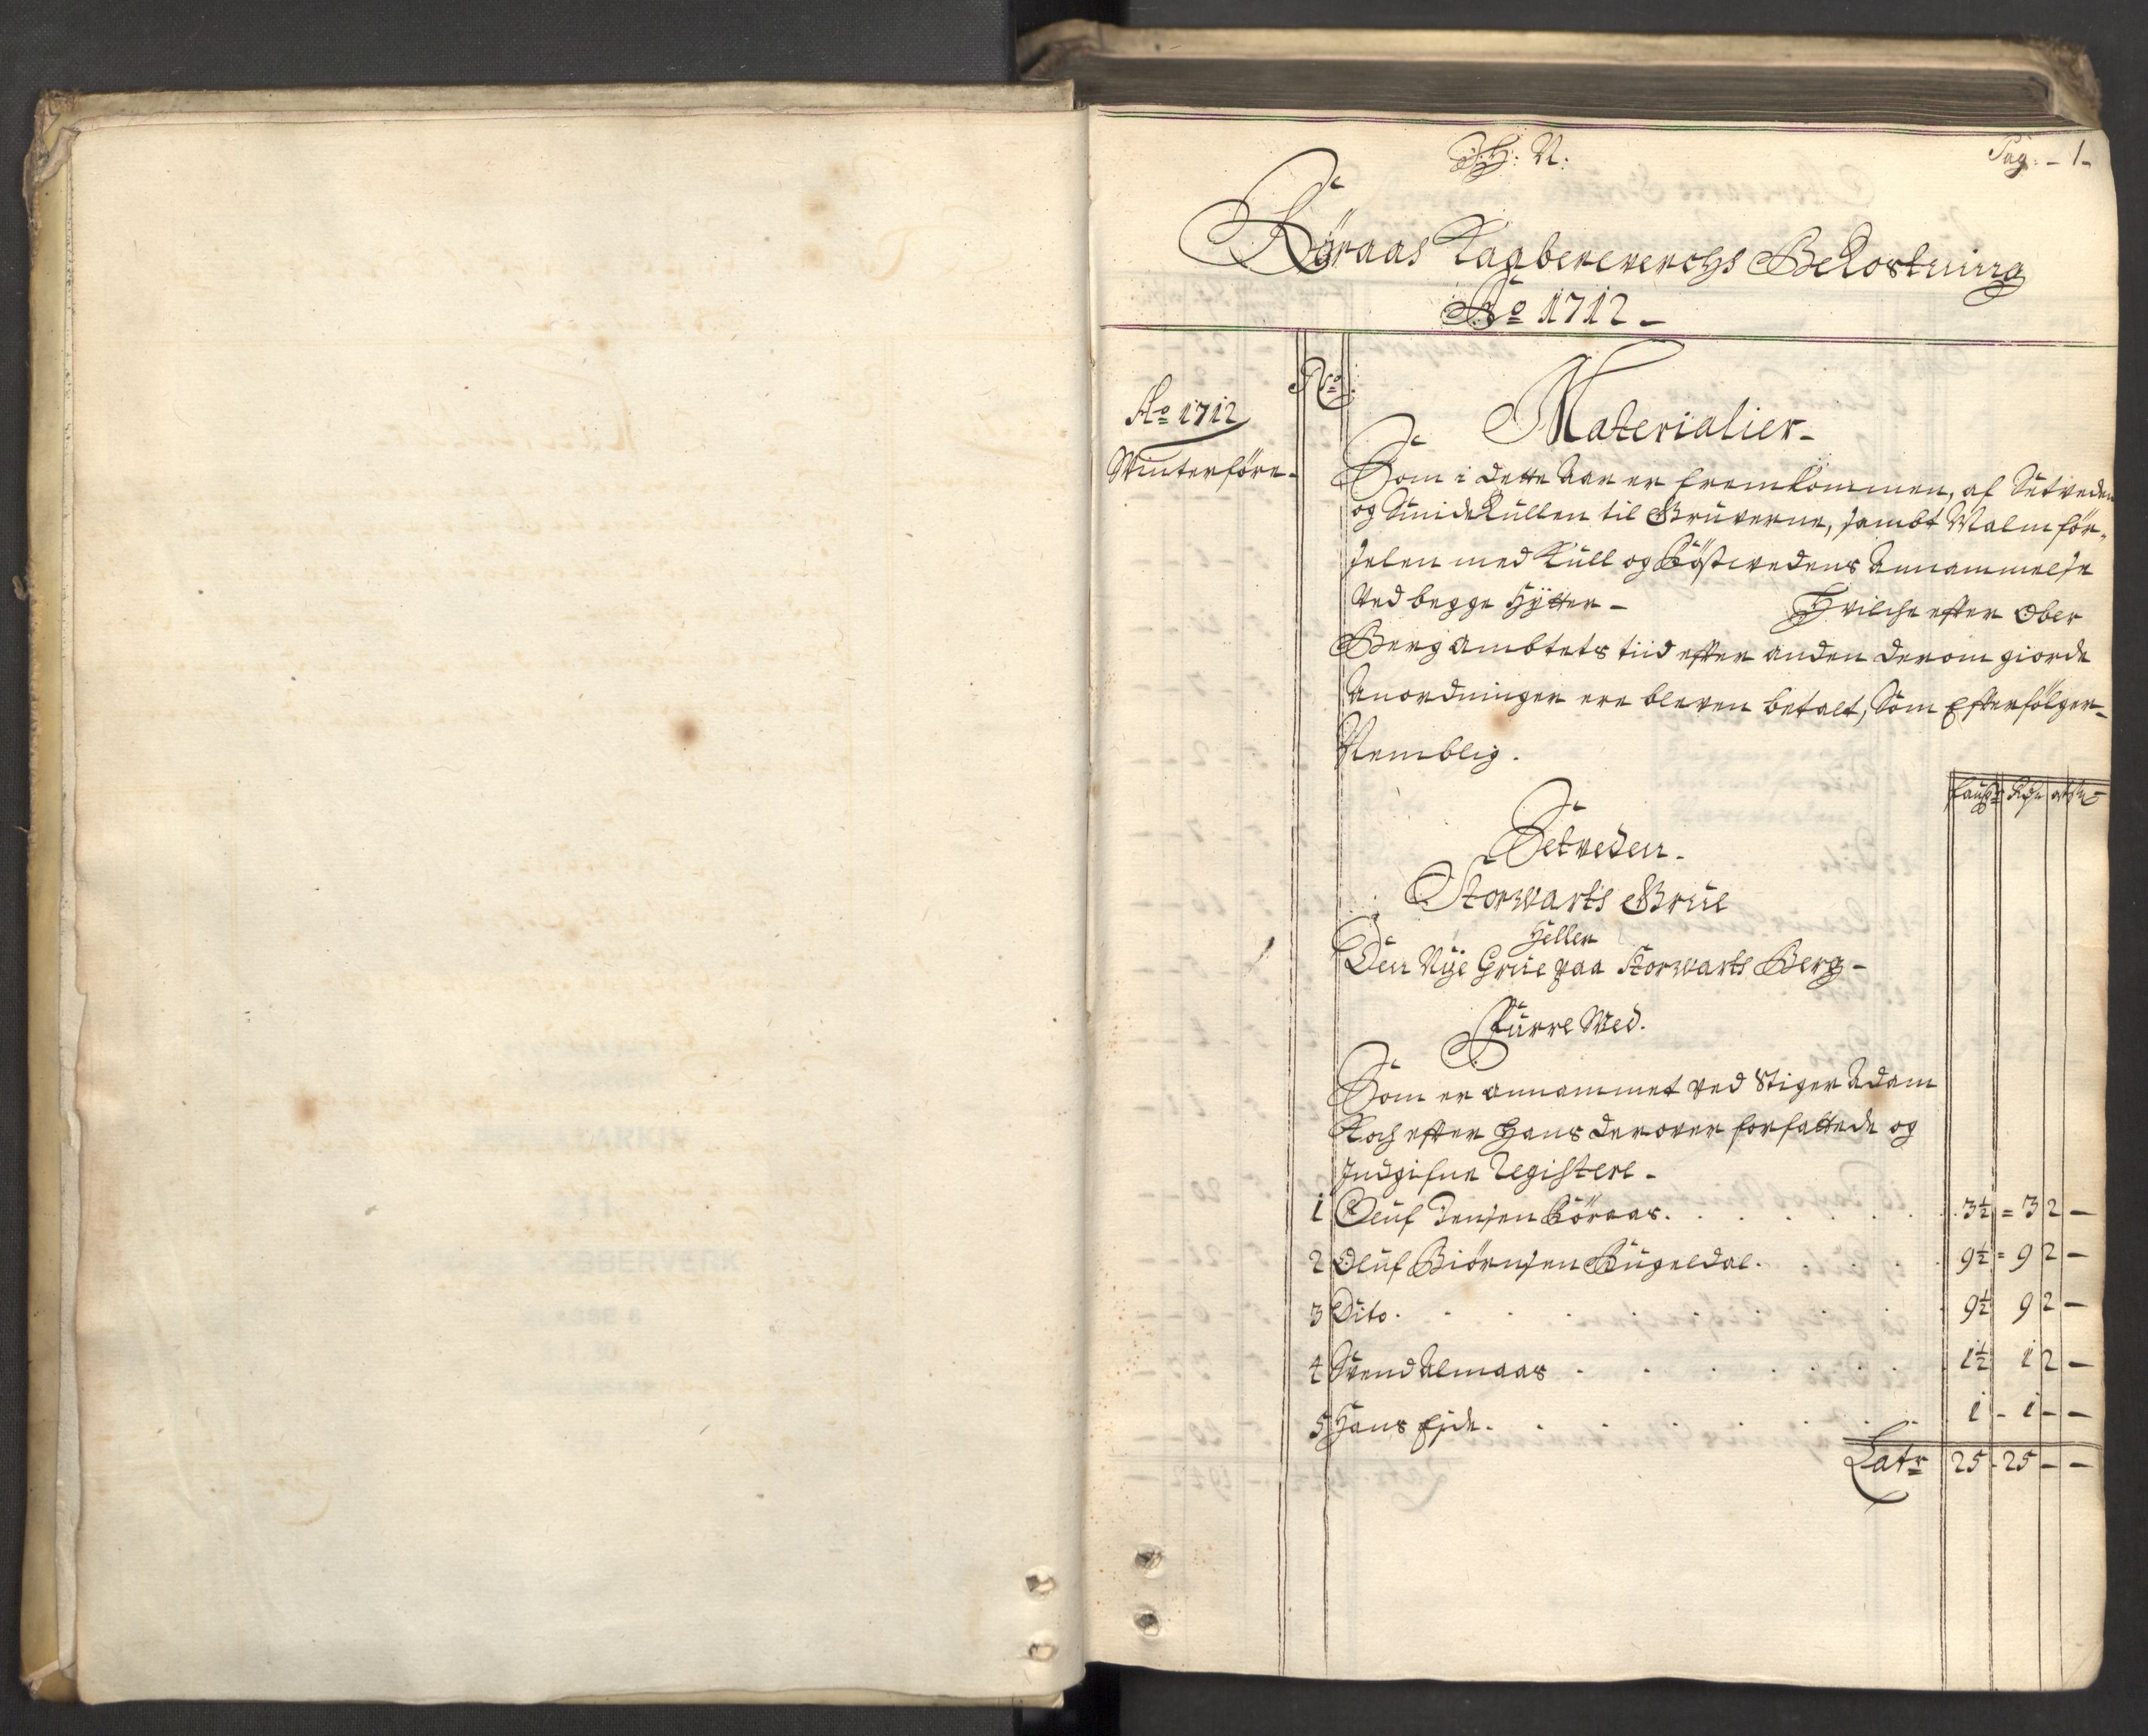 Pag: - 1 -
Röraas Kaabberverchs Bekostning
Ao 1712 -
Ao 1712
Winterföre -
No
Materialier -
Som i dette Aar er fremkommen, af Sætveden
og Smidekullen til Gruverne, sambt Malmför-
selen med Kull og Röstvedens Annammelse
ved begge Hytter - Hvilche efter Ober
Berg Ambtets tiid efter anden derom giorde
Anordninger ere bleven betalt, Som Efterfölger -
Nemblig.
Setveden -
Storwarts Grue
Heller
Den Nye Grue paa Storwarts Berg -
Furre Wed.
Som er annammet ved Stiger Adam
Koch efter Hans derover forfattede og
Indgifne Registere -
1 Oluf Jensen Röraas . . . 3½ = 3 2 -
2 Oluf Biörnsen Rugeldal . . . 9½ = 9 2 -
3 Dito . . . 9½ 9 2 -
4 Svend Almaas . . . 1½ 1 2 -
5 Hans Eide . . . 1 - 1 - -
Latr 25 - 25 - -